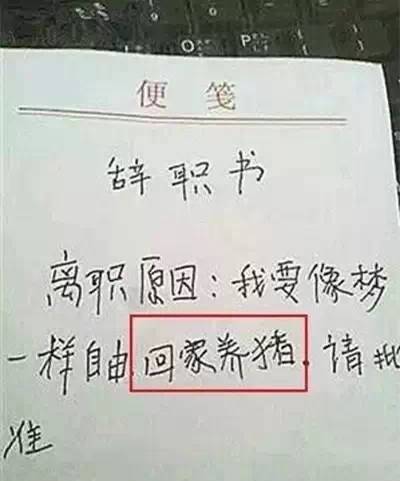 O P
便 笺
辞职书
离职原因：我要像梦
一样自由.回家养猪.请批
准